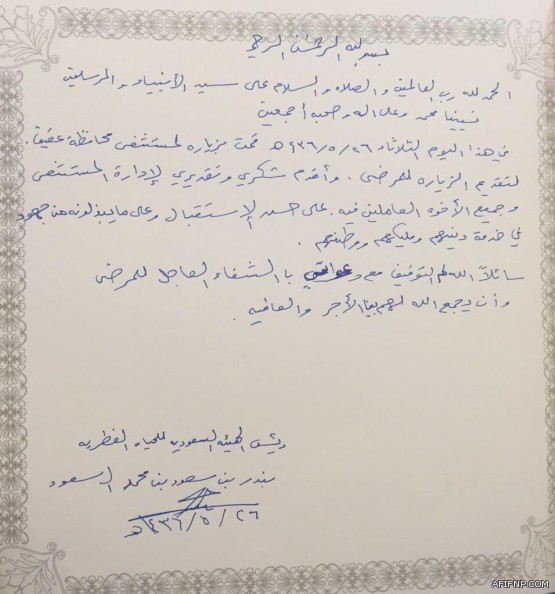 بسم الله الرحمن الرحيم
الحمد لله رب العالمين والصلاه والسلام على سيد الأنبياء والمرسلين
نبينا محمد وعلى اله وصحبه أجمعين
في هذا اليوم الثلاثاء ١٤٣٦/٥/٢٦هـ قمت بزياره لمستشفى محافظة عفيف .
لتقديم الزياره للمرضى . وأقدم شكري وتقديري لإدارة المستشفى
وجميع الأخوه العاملين فيه . على حسن الإستقبال وعلى مايبذلونه من جهود
في خدمة دينهم ومليكهم ووطنهم .
سائلاً الله لهم التوفيق مع دعواتي بالشفاء العاجل للمرضى
وأن يجمع الله لهم بين الأجر والعافيه .
رئيس الهيئه السعوديه للحياه الفطريه
بندر بن سعود بن محمد ال سعود
١٤٣٦/٥/٢٦هـ
AFIFNP.COM